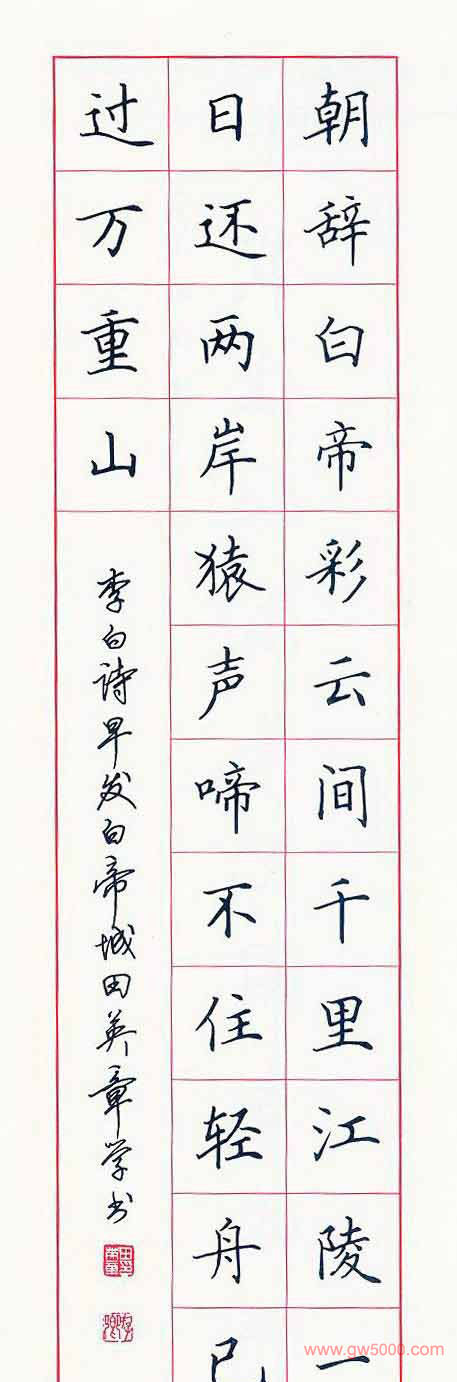 朝辞白帝彩云间千里江陵一
日还两岸猿声啼不住轻舟已
过万重山
李白诗早发白帝城田英章学书
www.gw5000.com